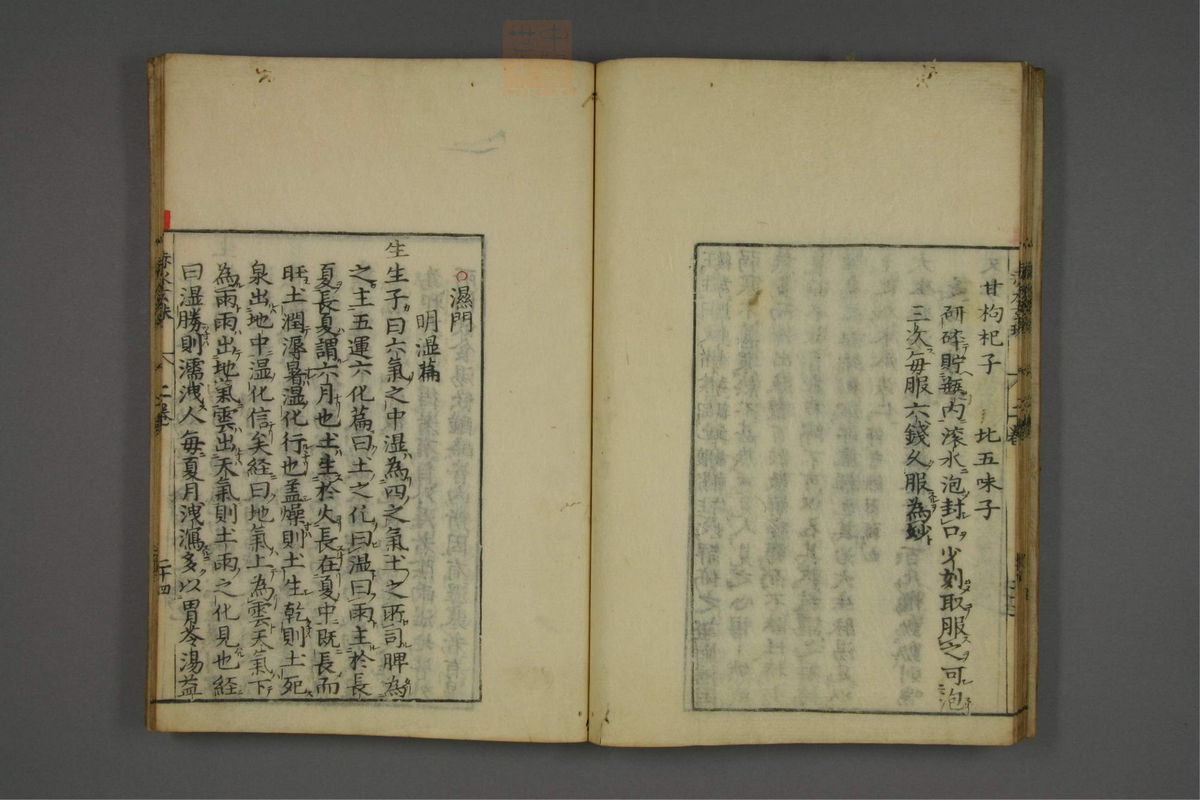 又甘枸杞子　北五味子
研碎貯瓶内滚水泡封口少刻取服之可泡
三次每服六錢久服為妙
○濕門
明湿篇
生生子曰六氣之中湿為四之氣土之所司脾為
之主五運六化篇曰土之化曰湿曰雨主於長
夏長夏謂六月也土生於火長在夏中既長而
旺土潤溽暑湿化行也盖燥則土生乾則土死
泉出地中湿化信矣経曰地氣上為雲天氣下
為雨雨出地氣雲出天氣則土雨之化見也経
曰湿勝則濡洩人每夏月洩瀉多以胃苓湯益
二卷
二十四